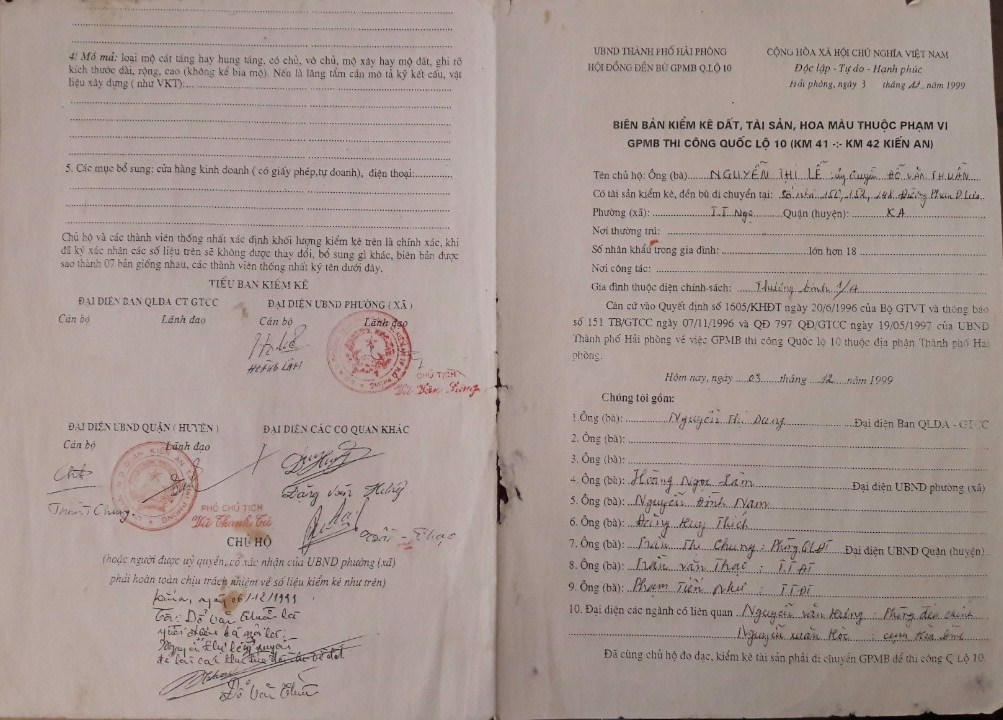 4/ Mồ mả: loại mộ cát táng hay hung táng, có chủ, vô chủ, mộ xây hay mộ đất, ghi rõ
kích thước dài, rộng, cao (không kể bia mộ). Nếu là lăng tẩm cần mô tả kỹ kết cấu, vật
liệu xây dựng ( như VKT):...
5. Các mục bổ sung: cửa hàng kinh doanh ( có giấy phép,tự doanh), điện thoại:
Chủ hộ và các thành viên thống nhất xác định khối lượng kiểm kê trên là chính xác, khi
đã ký xác nhận các số liệu trên sẽ không được thay đổi, bổ sung gì khác, biên bản được
sao thành 07 bản giống nhau, các thành viên thống nhất ký tên dưới đây.
TIỂU BAN KIỂM KÊ
ĐẠI DIỆN BAN QLDA CT GTCC
Cán bộ Lãnh đạo
ĐẠI DIỆN UBND PHƯỜNG ( XÃ )
Cán bộ Lãnh đạo
CHỦ TỊCH
ĐẠI DIỆN UBND QUẬN ( HUYỆN )
Cán bộ Lãnh đạo
Trần Chung
PHÓ CHỦ TỊCH
Vũ Thanh
ĐẠI DIỆN CÁC CƠ QUAN KHÁC
CHỦ HỘ
(hoặc người được uỷ quyền, có xác nhận của UBND phường (xã)
phải hoàn toàn chịu trách nhiệm về số liệu kiểm kê như trên)
ngày 06/12/1999
Tôi: Đỗ Văn Thuấn là
Đỗ Văn Thuấn
UBND THÀNH PHỐ HẢI PHÒNG
HỘI ĐỒNG ĐỀN BÙ GPMB Q.LỘ 10
CỘNG HÒA XÃ HỘI CHỦ NGHĨA VIỆT NAM
Độc lập - Tự do - Hạnh phúc
Hải phòng, ngày 3 tháng 12 năm 1999
BIÊN BẢN KIỂM KÊ ĐẤT, TÀI SẢN, HOA MÀU THUỘC PHẠM VI
GPMB THI CÔNG QUỐC LỘ 10 (KM 41 -:- KM 42 KIẾN AN)
Tên chủ hộ: Ông (bà) NGUYỄN THỊ LỄ ủy quyền ĐỖ VĂN THUẤN
Có tài sản kiểm kê, đền bù di chuyển tại: Số nhà 150, 152, 148 Đường Phan Đ Lưu
Phường (xã): T.T Ngọ Quận (huyện): KA
Nơi thường trú:
Số nhân khẩu trong gia đình: lớn hơn 18
Nơi công tác:
Gia đình thuộc diện chính-sách: Thương binh 1/4
Căn cứ vào Quyết định số 1605/KHĐT ngày 20/6/1996 của Bộ GTVT và thông báo
số 151 TB/GTCC ngày 07/11/1996 và QĐ 797 QĐ/GTCC ngày 19/05/1997 của UBND
Thành phố Hải phòng về việc GPMB thi công Quốc lộ 10 thuộc địa phận Thành phố Hải
phòng.
Hôm nay, ngày 03 tháng 12 năm 1999
Chúng tôi gồm:
1.Ông (bà): Nguyễn Thị Dung Đại diện Ban QLDA - GTCC
2. Ông (bà):
3. Ông (bà):
4. Ông (bà): Hoàng Ngọc Lâm Đại diện UBND phường (xã)
5. Ông (bà): Nguyễn Đình Nam
6. Ông (bà): Huy Thích
7. Ông (bà): Trần Thị Chung : Phòng QLĐT Đại diện UBND Quận (huyện)
8. Ông (bà): Trần Văn Thạc : TTĐT
9. Ông (bà): Phạm Tiến Như : TTĐT
10. Đại diện các ngành có liên quan Nguyễn Văn Hưng : Phòng địa chính
Nguyễn Xuân
Đã cùng chủ hộ đo đạc, kiểm kê tài sản phải di chuyển GPMB để thi công Q Lộ 10.